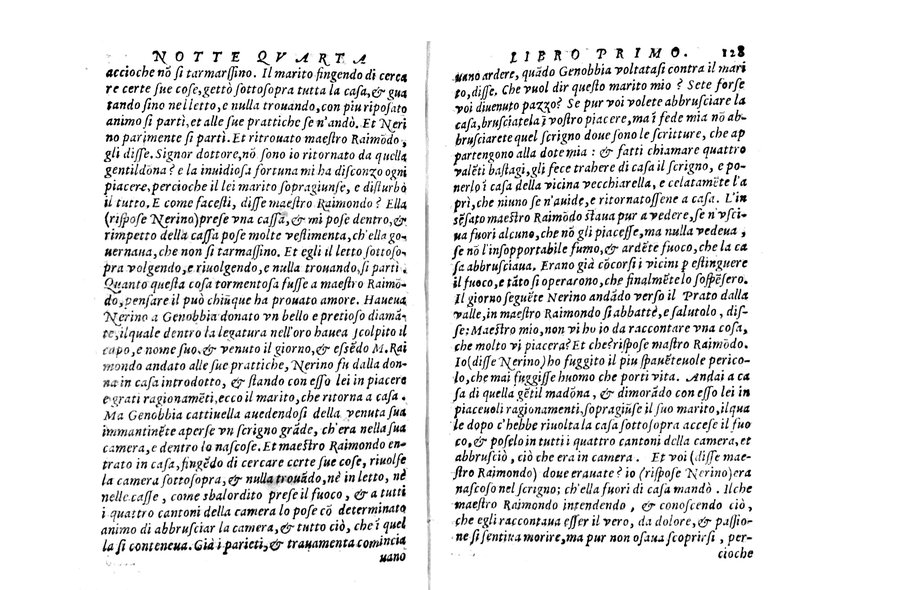 NOTTE QVARTA
accioche nõ si tarmarssino. Il marito fingendo di cerca
re certe sue cose, gettò sottosopra tutta la casa, & gua
tando sino nel letto, e nulla trouando, con piu riposato
animo si partì, et alle sue prattiche se n'andò. Et Neri
no parimente si partì. Et ritrouato maestro Raimõdo,
gli disse. Signor dottore, nõ sono io ritornato da quella
gentildõna? e la inuidiosa fortuna mi ha disconzo ogni
piacere, percioche il lei marito sopragiunse, e disturbò
il tutto. E come facesti, disse maestro Raimondo? Ella
(rispose Nerino) prese vna cassa, & mi pose dentro, &
rimpetto della cassa pose molte vestimenta, ch'ella go-
uernaua, che non si tarmassino. Et egli il letto sottoso-
pra volgendo, e riuolgendo, e nulla trouando, si partì.
Quanto questa cosa tormentosa fusse a maestro Raimõ-
do, pensare il può chiũque ha prouato amore. Haueua
Nerino a Genobbia donato vn bello e pretioso diamã-
te, ilquale dentro la legatura nell'oro hauea scolpito il
capo, e nome suo, & venuto il giorno, & essẽdo M. Rai
mondo andato alle sue prattiche, Nerino fu dalla don-
na in casa introdotto, & stando con esso lei in piacere
e grati ragionamẽti, ecco il marito, che ritorna a casa.
Ma Genobbia cattiuella auedendosi della venuta sua
immantinẽte aperse vn scrigno grãde, ch'era nella sua
camera, e dentro lo nascose. Et maestro Raimondo en-
trato in casa, fingẽdo di cercare certe sue cose, riuolse
la camera sottosopra, & nulla trouãdo, nè in letto, nè
nelle casse, come sbalordito prese il fuoco, & a tutti
i quattro cantoni della camera lo pose cõ determinato
animo di abbrusciar la camera, & tutto ciò, che ĩ quel
la si conteneua. Già i parieti, & trauamenta comincia
uano
LIBRO PRIMO. 128
uano ardere, quãdo Genobbia voltatasi contra il mari
to, disse. Che vuol dir questo marito mio? Sete forse
voi diuenuto pazzo? Se pur voi volete abbrusciare la
casa, brusciatela ĩ vostro piacere, ma ĩ fede mia nõ ab-
brusciarete quel scrigno doue sono le scritture, che ap
partengono alla dote mia: & fatti chiamare quattro
valẽti bastagi, gli fece trahere di casa il scrigno, e po-
nerlo ĩ casa della vicina vecchiarella, e celatamẽte l'a
prì, che niuno se n'auide, e ritornatossene a casa. L'in
sẽsato maestro Raimõdo staua pur a vedere, se n'vsci-
ua fuori alcuno, che nõ gli piacesse, ma nulla vedeua,
se nõ l'insopportabile fumo, & ardẽte fuoco, che la ca
sa abbrusciaua. Erano già cõcorsi i vicini p estinguere
il fuoco, e tãto si operarono, che finalmẽte lo sospẽsero.
Il giorno seguẽte Nerino andãdo verso il Prato dalla
valle, in maestro Raimondo si abbattè, e salutolo, dis-
se: Maestro mio, non vi ho io da raccontare vna cosa,
che molto vi piacera? Et che? rispose maestro Raimondo.
Io (disse Nerino) ho fuggito il piu spauẽteuole perico-
lo, che mai fuggisse huomo che porti vita. Andai a ca
sa di quella gẽtil madõna, & dimorãdo con esso lei in
piaceuoli ragionamenti, sopragiũse il suo marito, ilqua
le dopo c'hebbe riuolta la casa sottosopra accese il fuo
co, & poselo in tutti i quattro cantoni della camera, et
abbrusciò, ciò che era in camera. Et voi (disse mae-
stro Raimondo) doue erauate? io (rispose Nerino) era
nascoso nel scrigno; ch'ella fuori di casa mandò. Ilche
maestro Raimondo intendendo, & conoscendo ciò,
che egli raccontaua esser il vero, da dolore, & passio-
ne si sentiua morire, ma pur non osaua scoprirsi, per-
cioche